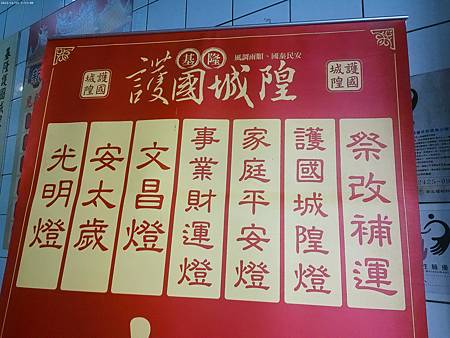 風調雨順、國泰民安
基隆
護國城隍
護國城隍
護國城隍
祭改補運
護國城隍燈
家庭平安燈
事業財運燈
文昌燈
安太歲
光明燈